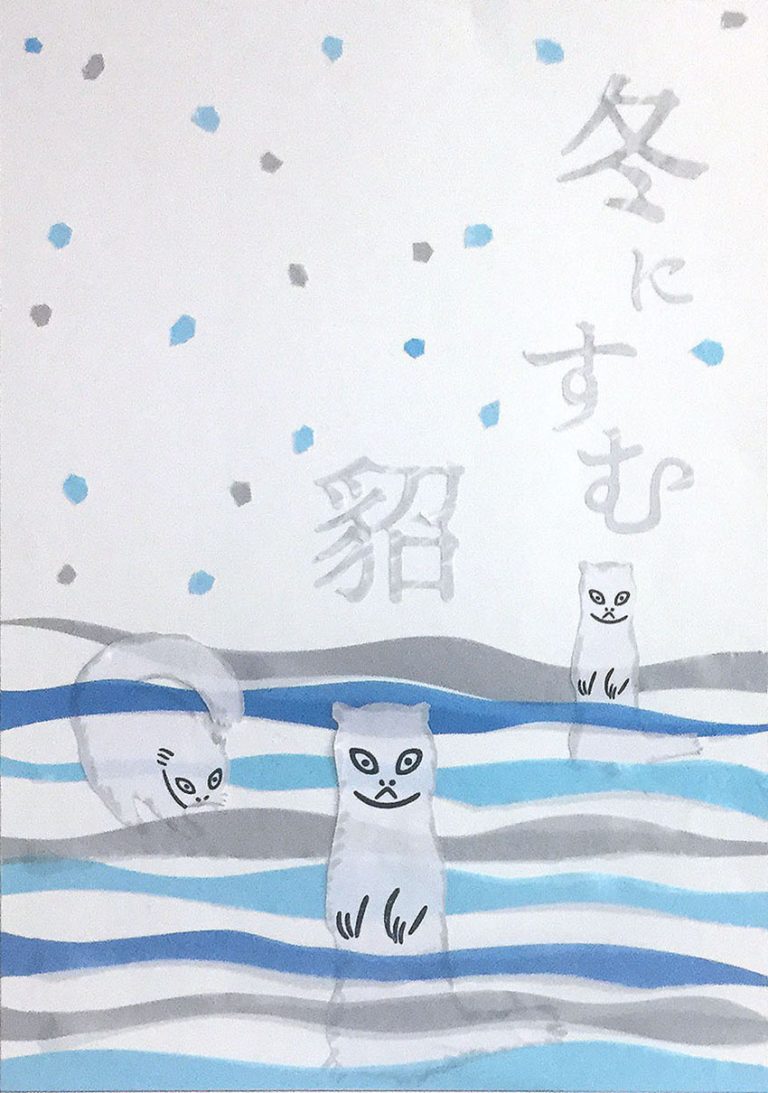 冬に
すむ
貂